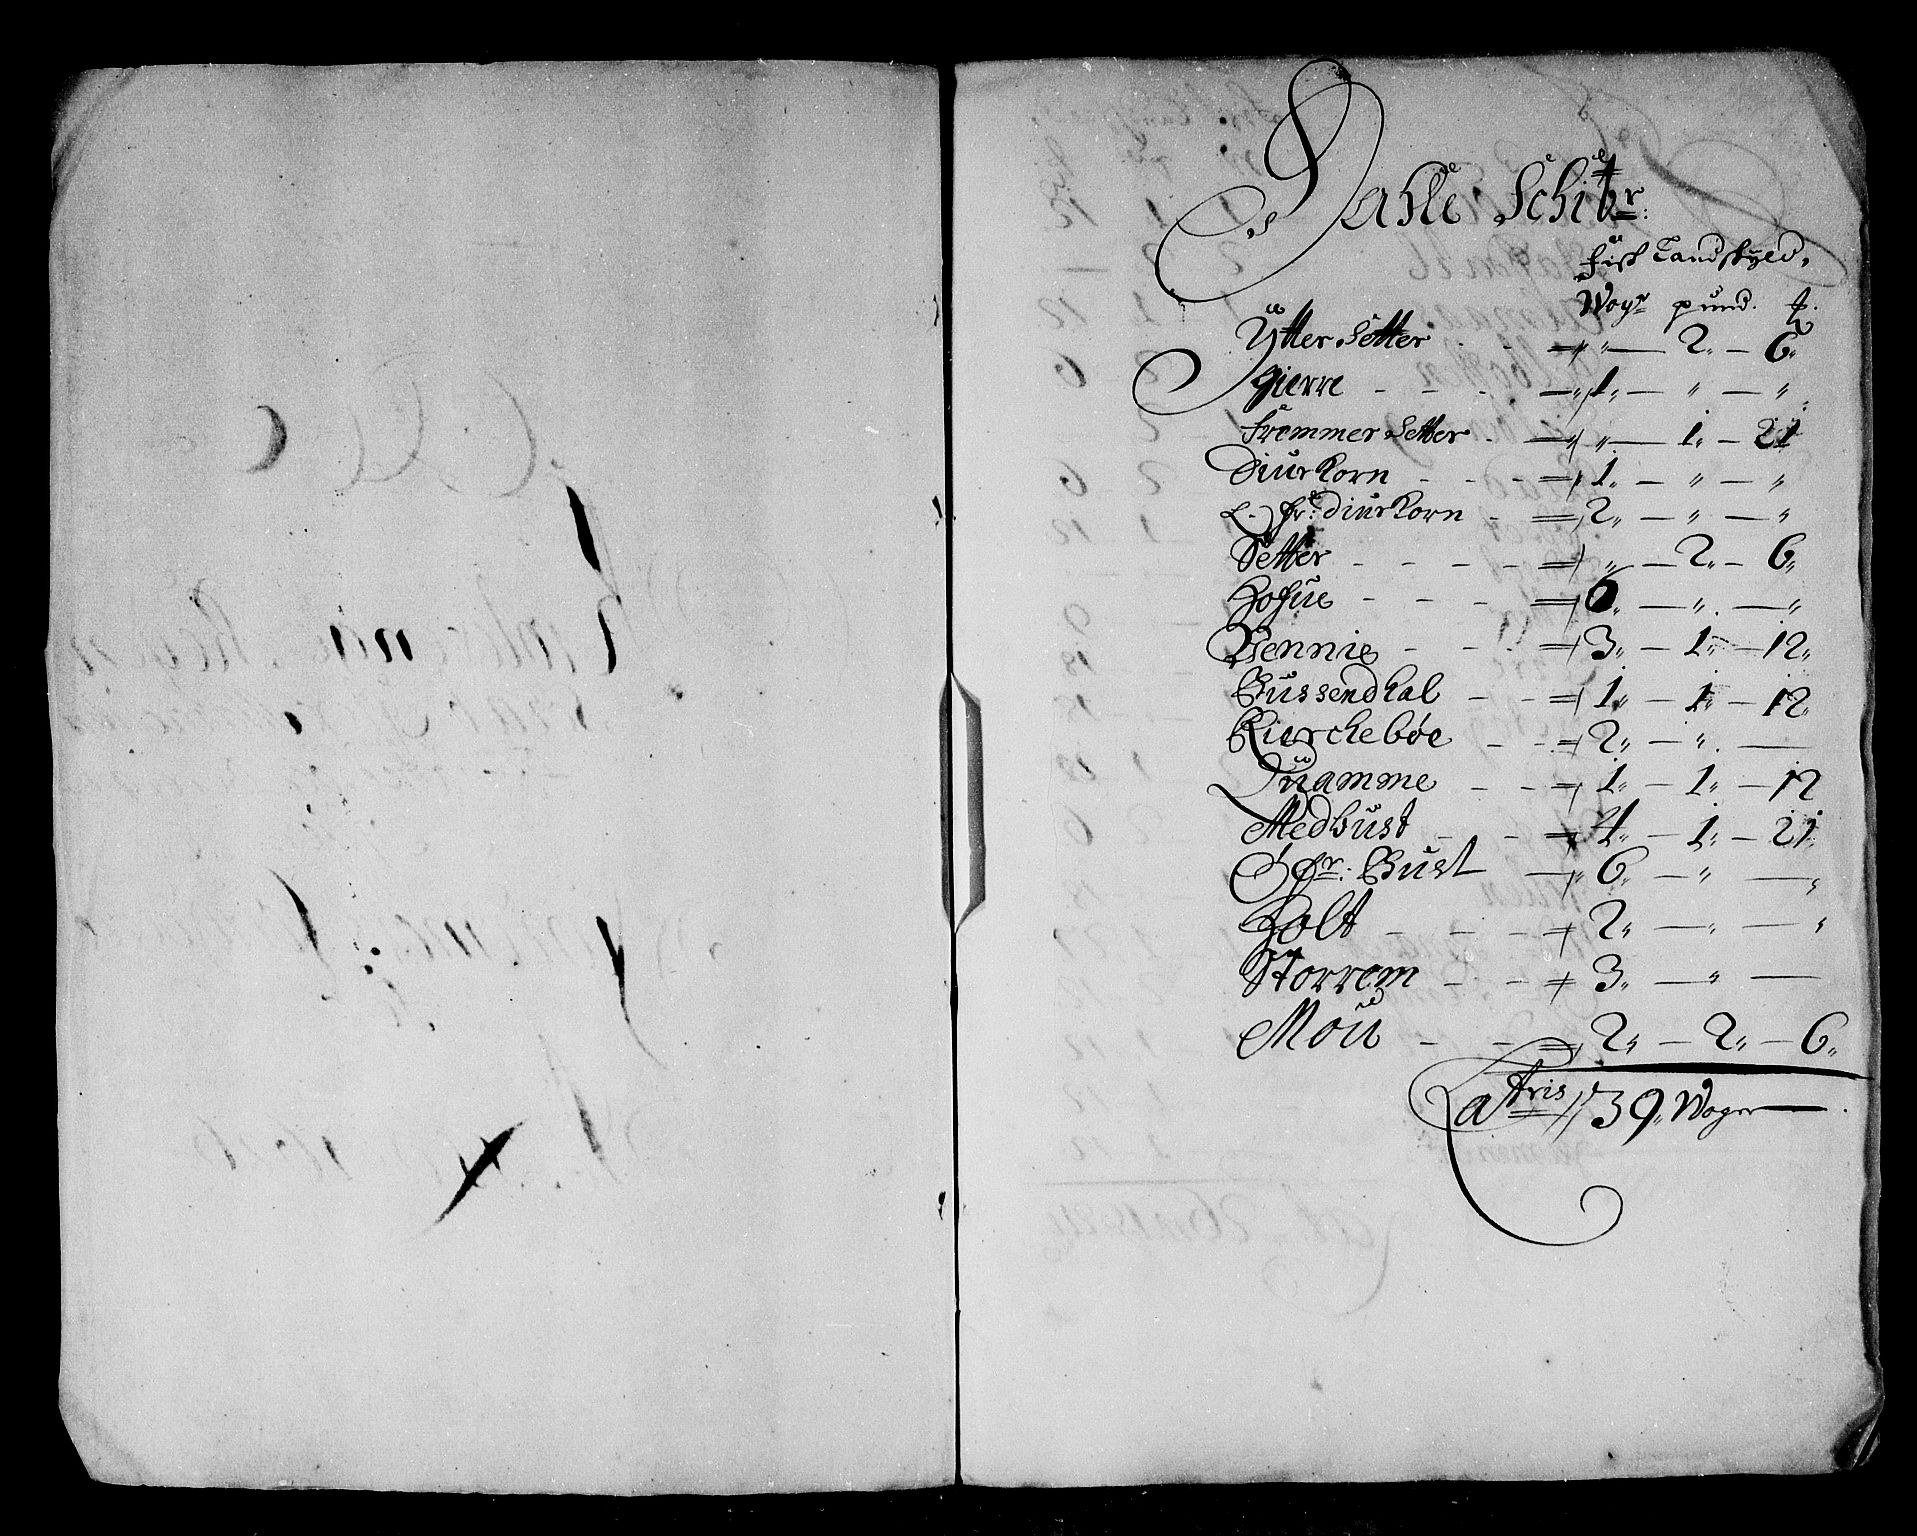 Dahle Schibr:
fisk Landskyld,
Wogr pund. ℔.
Ytter Setter - - „ — 2„ — 6„
Gierre - - - - „ 1„ — „ — „
Fremmer Setter - - „ — 1„ — 21
Diurkorn - - - 1„ — „ — „
L. fr: diurkorn - 2„ — „ — „
Setter - - - - „ — 2„ — 6„
Hofue - - - 6„ — „ — „
Vennie - - - 3„ — 1„ — 12„
Bussendhal - - 1„ — 1„ — 12„
Kierckebøe - - 2„ — „ —
Quamme - - 1„ — 1„ — 12
Medbust - - 4„ — 1„ — 21„
Bust — „ 6„ — „ — „
Holt - - - - 2„ — „ — „
Storrem - - - 3„ — „ —
Mou - - - 2„ — 2„ — 6„
Latris 39„ Woger